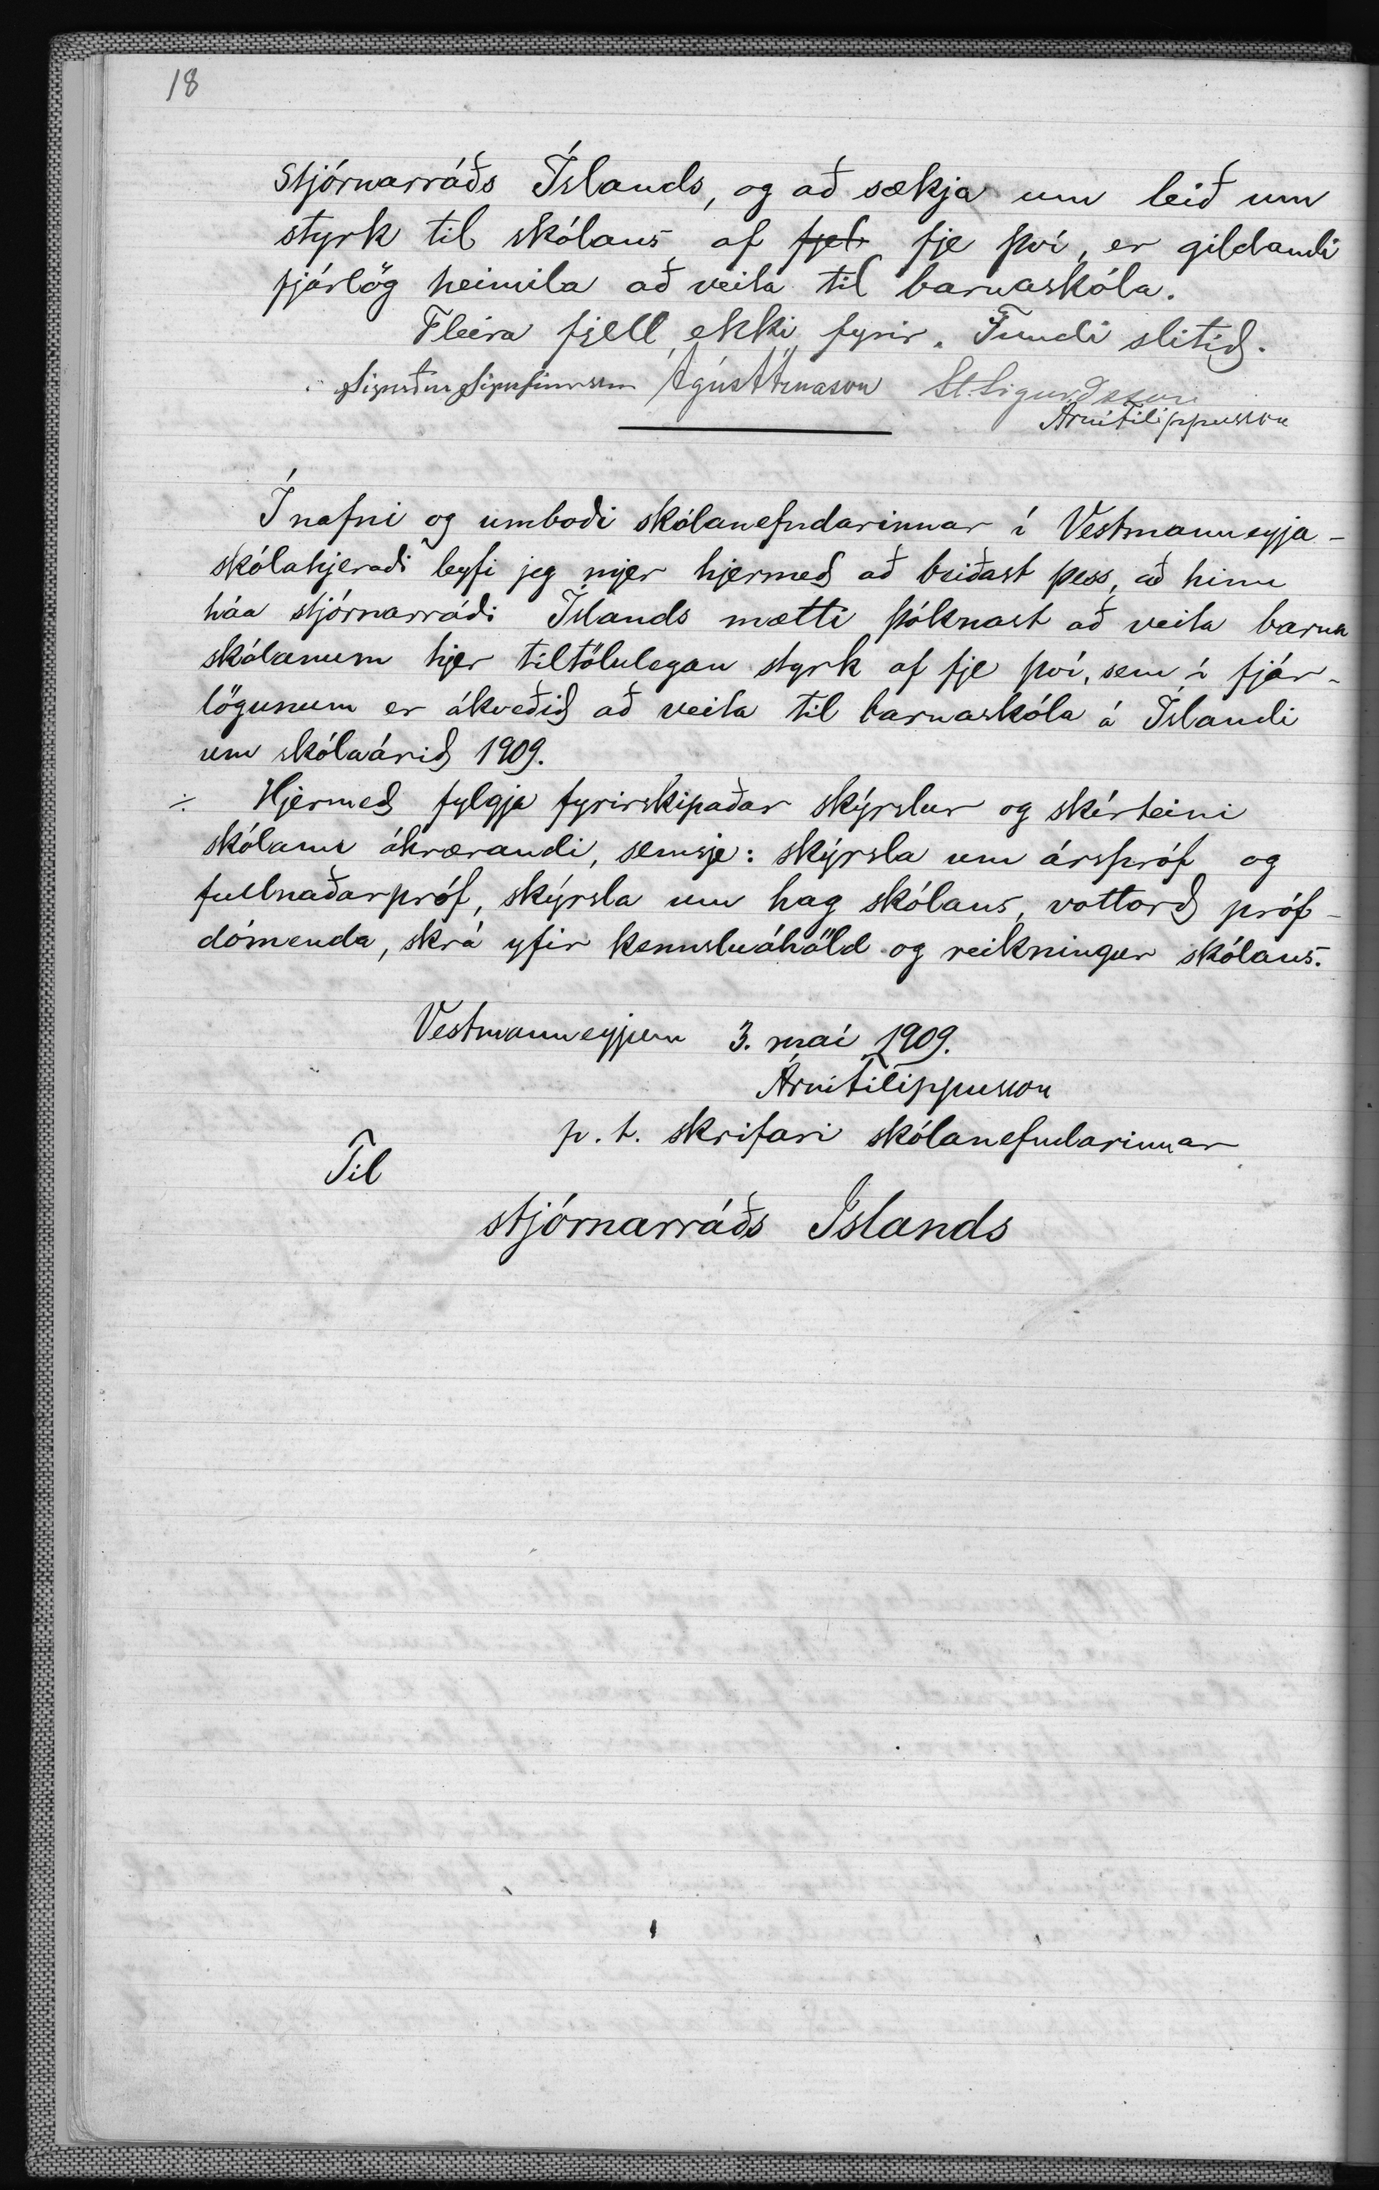 18
Stjórnarráðs Íslands, og að sækja um leið um
styrk til skólans af fjel. fje því, er gildandi
fjárlög heimila að veita til barnaskóla.
Fleira fjell ekki fyrir. Fundi slitið.
Sigurður Sigurfinnsson Ágúst Árnason St. Sigurðsson
Árni Filippusson
Í nafni og umboði skólanefndarinnar í Vestmannneyja-
skólahjeraði leyfi jeg mjer hjermeð að beiðast þess, að hinu
háa stjórnarráði Íslands mætti þóknast að veita barna
skólanum hjer tiltölulegan styrk af fje því, sem í fjár-
lögunum er ákveðið að veita til barnaskóla á Íslandi
um skólaárið 1909.
÷ Hjermeð fylgja fyrirskipaðar skýrslur og skírteini
skólann áhrærandi, semsje: skýrsla um árspróf og
fullnaðarpróf, skýrsla um hag skólans, vottorð próf-
dómenda, skrá yfir kennsluáhöld og reikningur skólans.
Vestmanneyjum 3. maí 1909.
Árni Filippusson
p.t. skrifari skólanefndarinnar
Til
stjórnarráðs Íslands